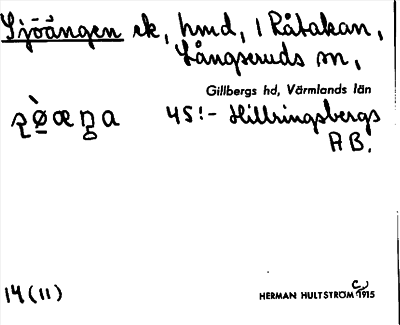 Sjöängen ek, hmd, 1 Råtakan,
Långseruds sn,
Gillbergs hd, Värmlands län
45:- Hillringsbergs
AB.
14(11)
HERMAN HULTSTRÖM 1915